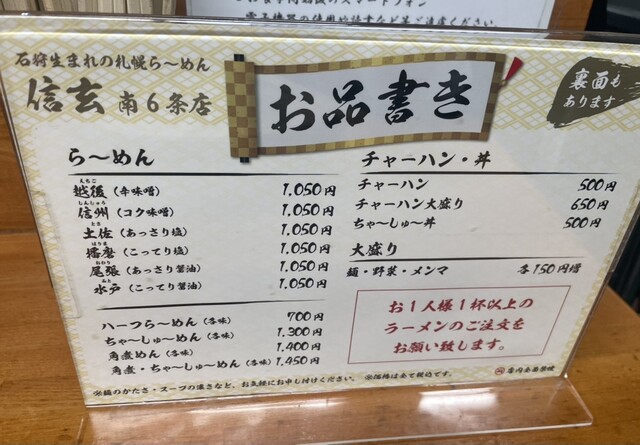 電子機器の使用
ご遠慮ください
石狩生まれの札幌ら〜めん
信玄 南6条店
お品書き
裏面も
あります
ら〜めん
えちご
越後(辛味噌) 1,050円
しんしゅう
信州(コク味噌) 1,050円
とさ
土佐(あっさり塩) 1,050円
はりま
播磨(こってり塩) 1,050円
おわり
尾張(あっさり醤油) 1,050円
みと
水戸(こってり醤油) 1,050円
ハーフら〜めん(各味) 700円
ちゃ〜しゅ〜めん(各味) 1,300円
角煮めん(各味) 1,400円
角煮・ちゃ〜しゅ〜めん(各味) 1,450円
※麺のかたさ・スープの濃さなど、お気軽にお申し付けください。
チャーハン・丼
チャーハン 500円
チャーハン大盛り 650円
ちゃ〜しゅ〜丼 500円
大盛り
麺・野菜・メンマ 各150円増
お1人様1杯以上の
ラーメンのご注文を
お願い致します。
※価格は全て税込です。
店内全面禁煙